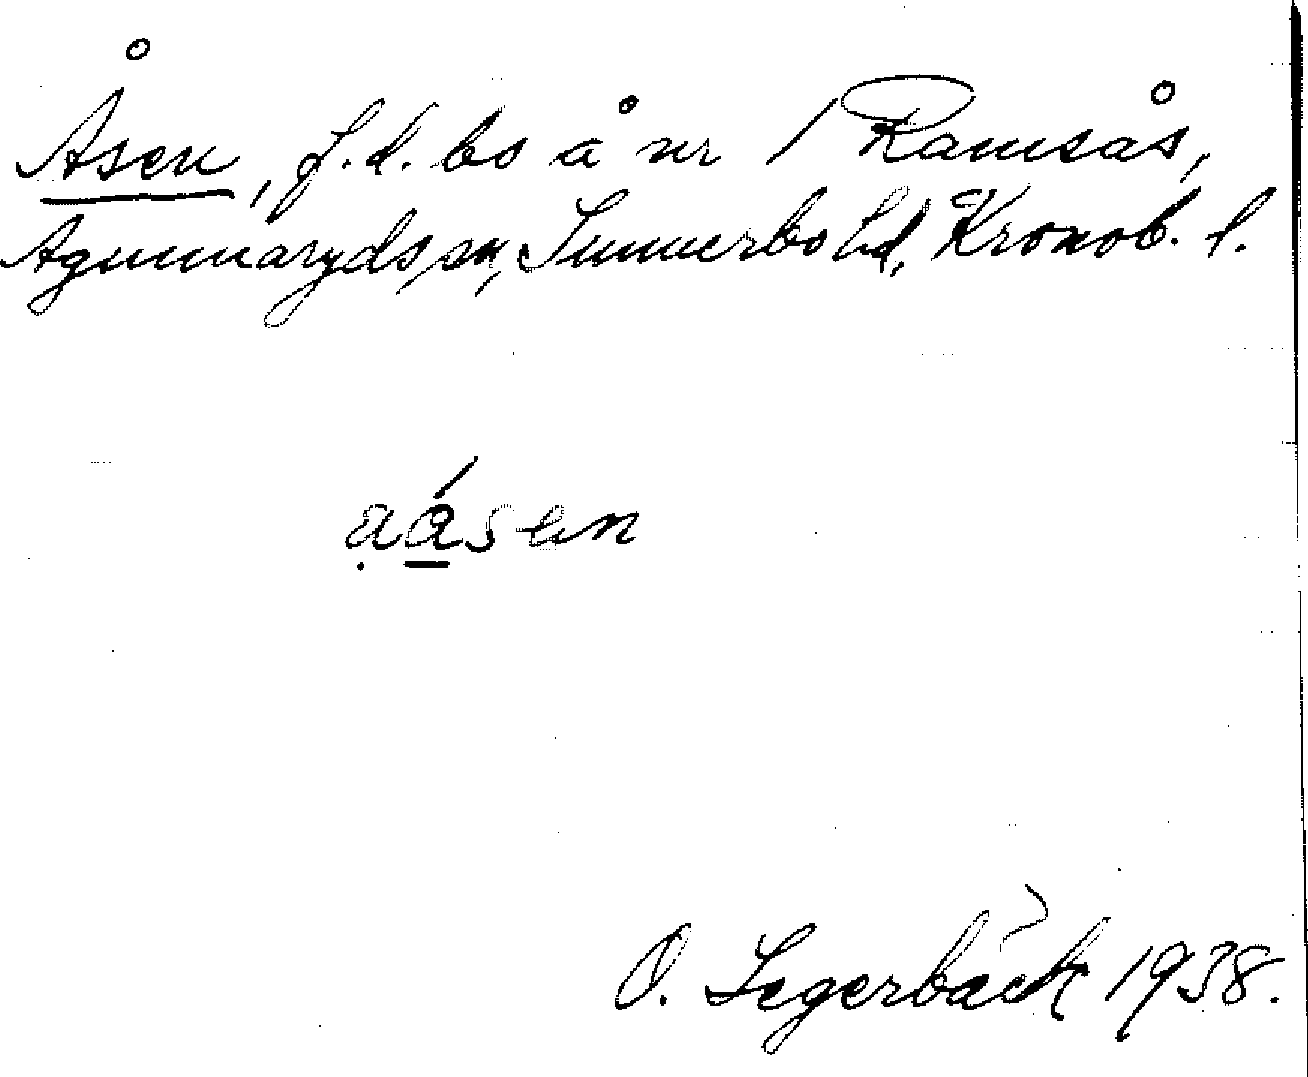 Åsen, f.d. bo å nr 1 Ramsås,
Agunnaryds sn, Sunnerbo hd, Kronob. l.
ạásen
O. Segerbäck 1938.